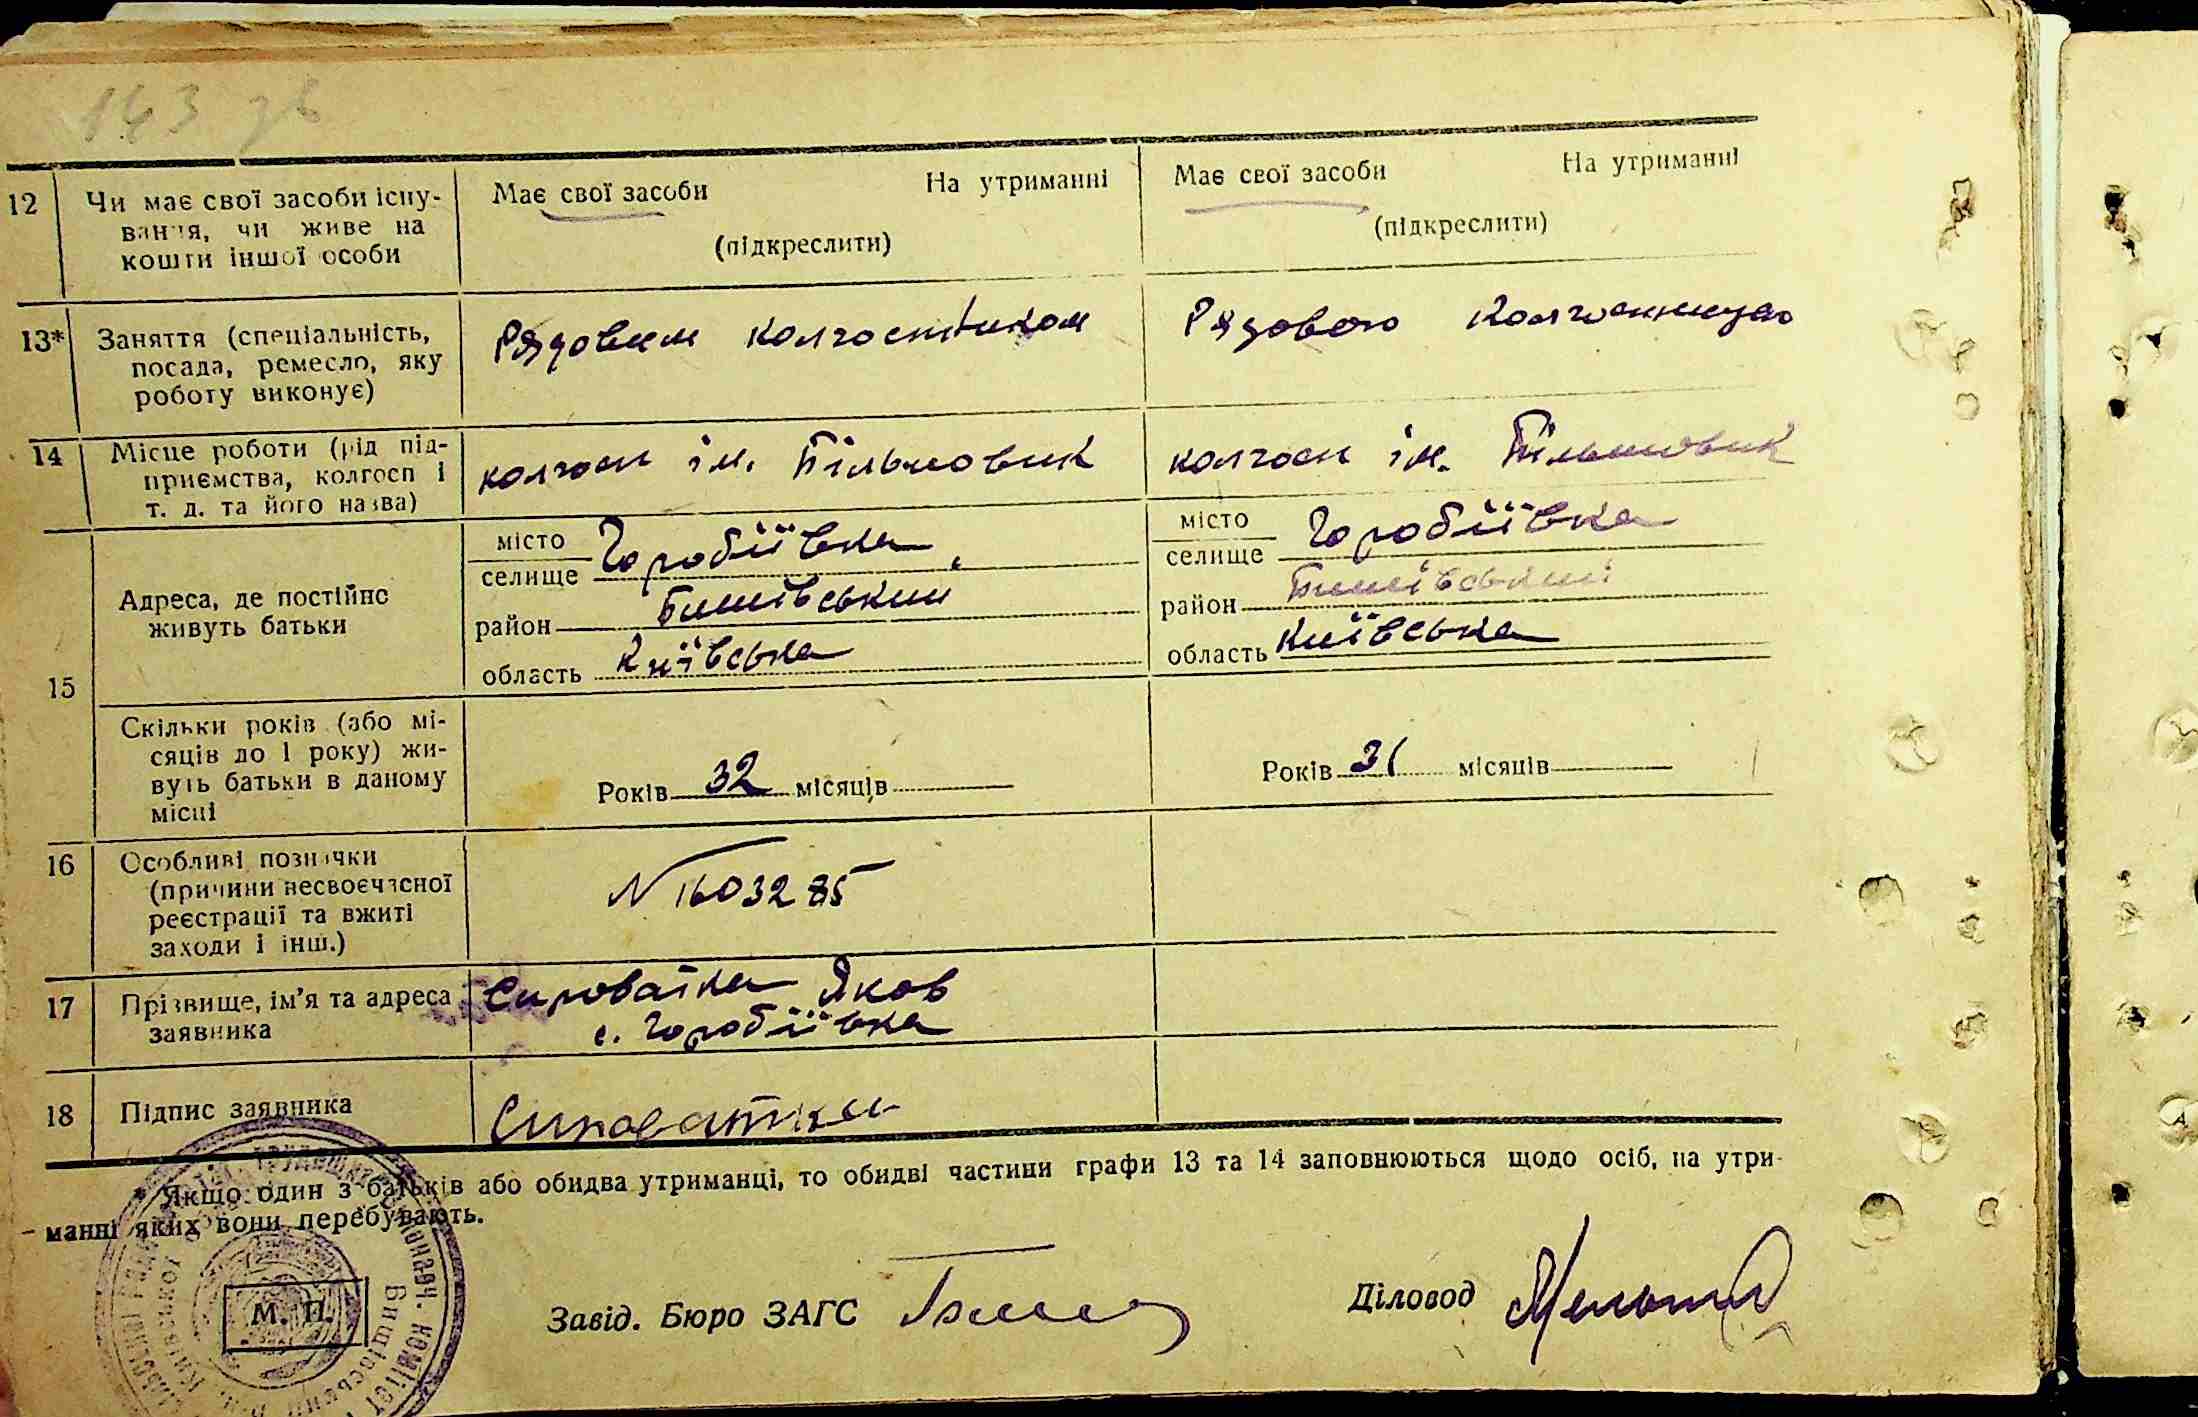 143 зв
12 Чи має свої засоби існу- Має свої засоби На утриманні Має свої засоби На утриманні
вання, чи живе на (підкреслити) (підкреслити)
кошти іншої особи
13* Заняття (спеціальність, Рядовим колгоспником Рядовою колгоспницею
посада, ремесло, яку
роботу виконує)
14 Місце роботи (рід під- колгосп ім. Більшовик колгосп ім. Більшовик
приємства, колгосп і
т. д. та його назва)
15 Адреса, де постійно місто Горобіївка місто Горобіївка
живуть батьки селище селище
район Бишівський район Бишівський
область Київська область Київська
Скільки років (або мі-
сяців до 1 року) жи-
вуть батьки в даному Років 32 місяців Років 31 місяців
місці
16 Особливі позначки
(причини несвоєчасної N 1603285
реєстрації та вжиті
заходи і інш.)
17 Прізвище, ім'я та адреса Сироватка Яков
заявника с. Горобіївка
18 Підпис заявника Сироватка
* Якщо один з батьків або обидва утриманці, то обидві частини графи 13 та 14 заповнюються щодо осіб, на утри-
манні яких вони перебувають.
М. П. Завід. Бюро ЗАГС Діловод